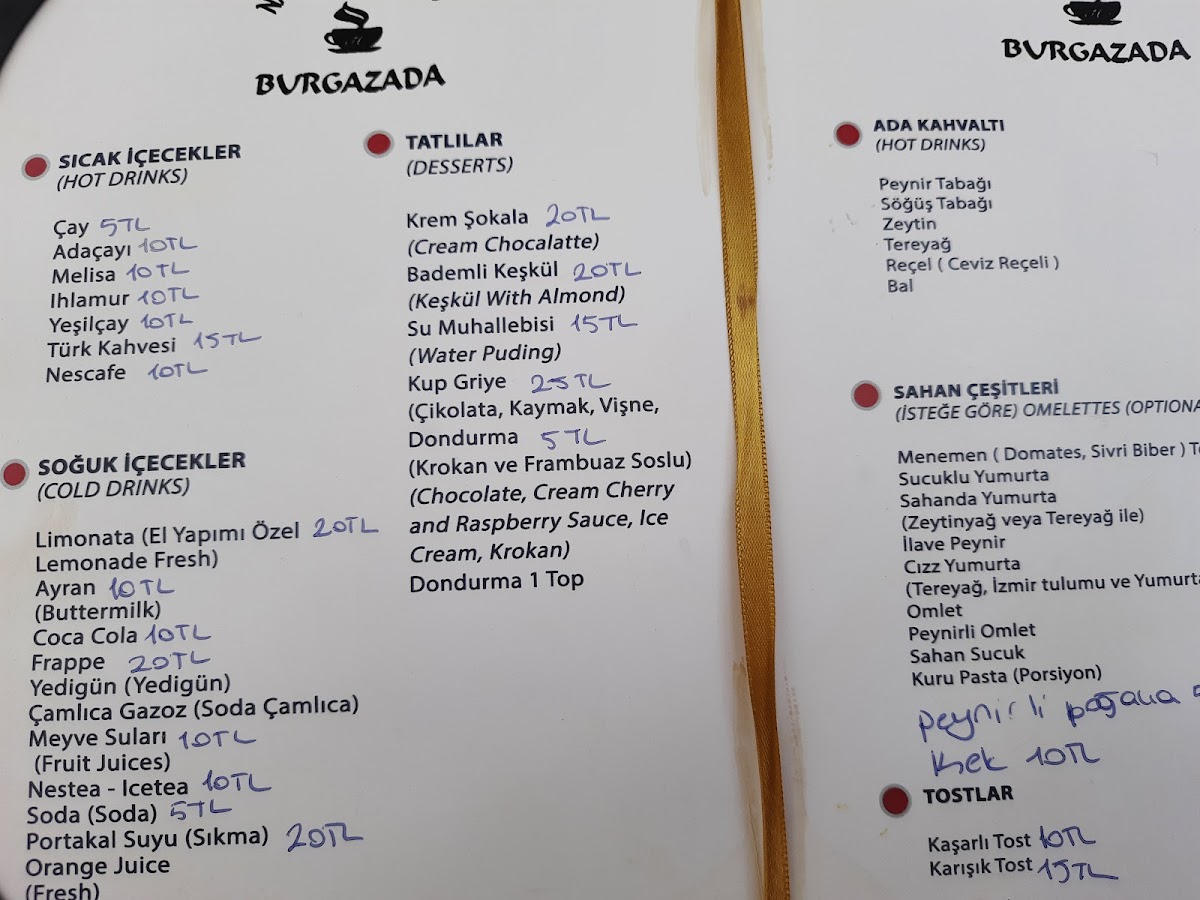 BURGAZADA
SICAK İÇECEKLER
(HOT DRINKS)
Çay 5TL
Adaçayı 10TL
Melisa 10TL
Ihlamur 10TL
Yeşilçay 10TL
Türk Kahvesi 15TL
Nescafe 10TL
SOĞUK İÇECEKLER
(COLD DRINKS)
Limonata (El Yapımı Özel 20TL
Lemonade Fresh)
Ayran 10TL
(Buttermilk)
Coca Cola 10TL
Frappe 20TL
Yedigün (Yedigün)
Çamlıca Gazoz (Soda Çamlıca)
Meyve Suları 10TL
(Fruit Juices)
Nestea - Icetea 10TL
Soda (Soda) 5TL
Portakal Suyu (Sıkma) 20TL
Orange Juice
(Fresh)
TATLILAR
(DESSERTS)
Krem Şokala 20TL
(Cream Chocalatte)
Bademli Keşkül 20TL
(Keşkül With Almond)
Su Muhallebisi 15TL
(Water Puding)
Kup Griye 25TL
(Çikolata, Kaymak, Vişne,
Dondurma 5TL
(Krokan ve Frambuaz Soslu)
(Chocolate, Cream Cherry
and Raspberry Sauce, Ice
Cream, Krokan)
Dondurma 1 Top
BURGAZADA
ADA KAHVALTI
(HOT DRINKS)
Peynir Tabağı
Söğüş Tabağı
Zeytin
Tereyağ
Reçel ( Ceviz Reçeli )
Bal
SAHAN ÇEŞİTLERİ
(İSTEĞE GÖRE) OMELETTES (OPTIONA
Menemen ( Domates, Sivri Biber ) T
Sucuklu Yumurta
Sahanda Yumurta
(Zeytinyağ veya Tereyağ ile)
İlave Peynir
Cızz Yumurta
(Tereyağ, İzmir tulumu ve Yumurta
Omlet
Peynirli Omlet
Sahan Sucuk
Kuru Pasta (Porsiyon)
Peynirli poğaca
Kek 10TL
TOSTLAR
Kaşarlı Tost 10TL
Karışık Tost 15TL